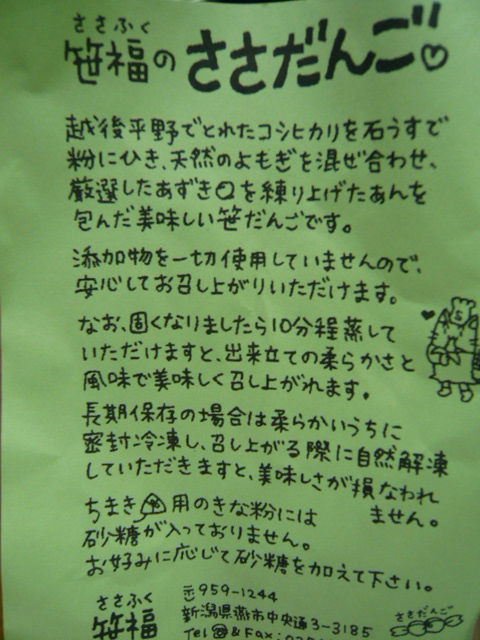 ささふく
笹福のささだんご♡
越後平野でとれたコシヒカリを石うすで
粉にひき、天然のよもぎを混ぜ合わせ、
厳選したあずきを練り上げたあんを
包んだ美味しい笹だんごです。
添加物を一切使用していませんので、
安心してお召し上がりいただけます。
なお、固くなりましたら10分程蒸して
いただけますと、出来立ての柔らかさと
風味で美味しく召し上がれます。
長期保存の場合は柔らかいうちに
密封冷凍し、召し上がる際に自然解凍
していただきますと、美味しさが損なわれ
ません。
ちまき用のきな粉には
砂糖が入っておりません。
お好みに応じて砂糖を加えて下さい。
ささふく
笹福
〒959-1244
新潟県燕市中央通3-3185
Tel & Fax:
ささだんご